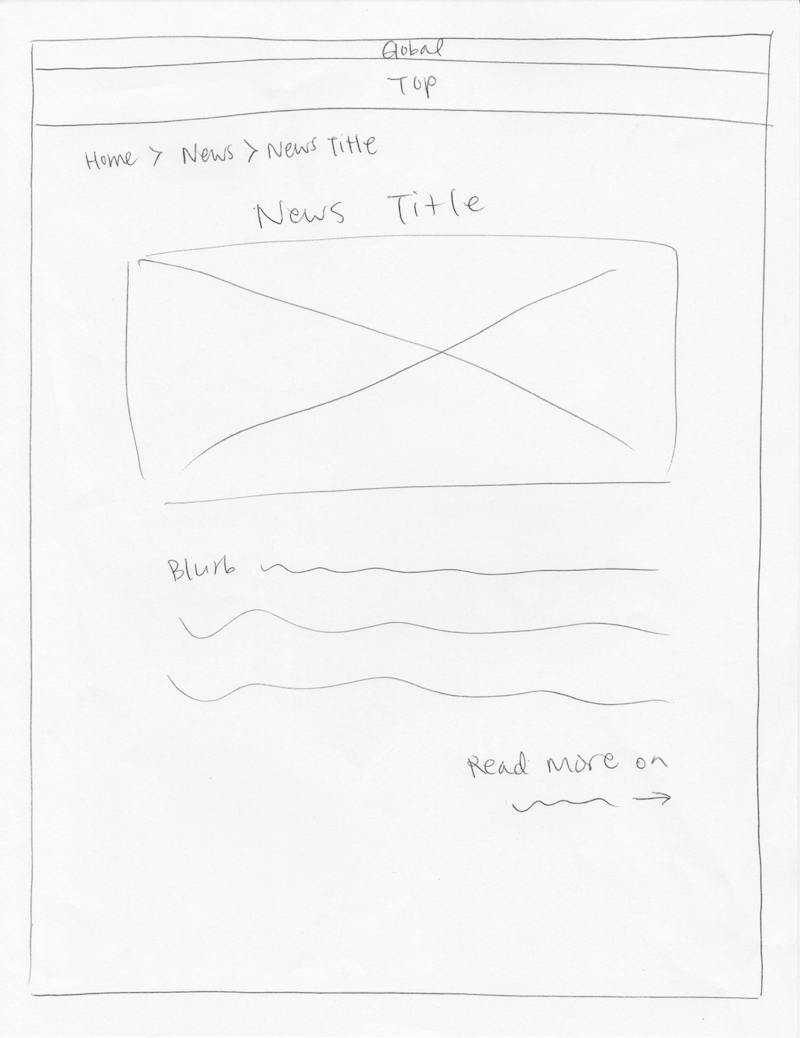 Global
Top
Home > News > News Title
News Title
Blurb
Read more on
→